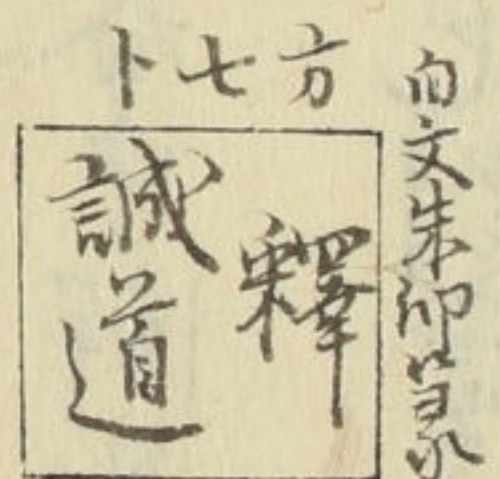 白文朱印篆
方七卜
釋
誠道